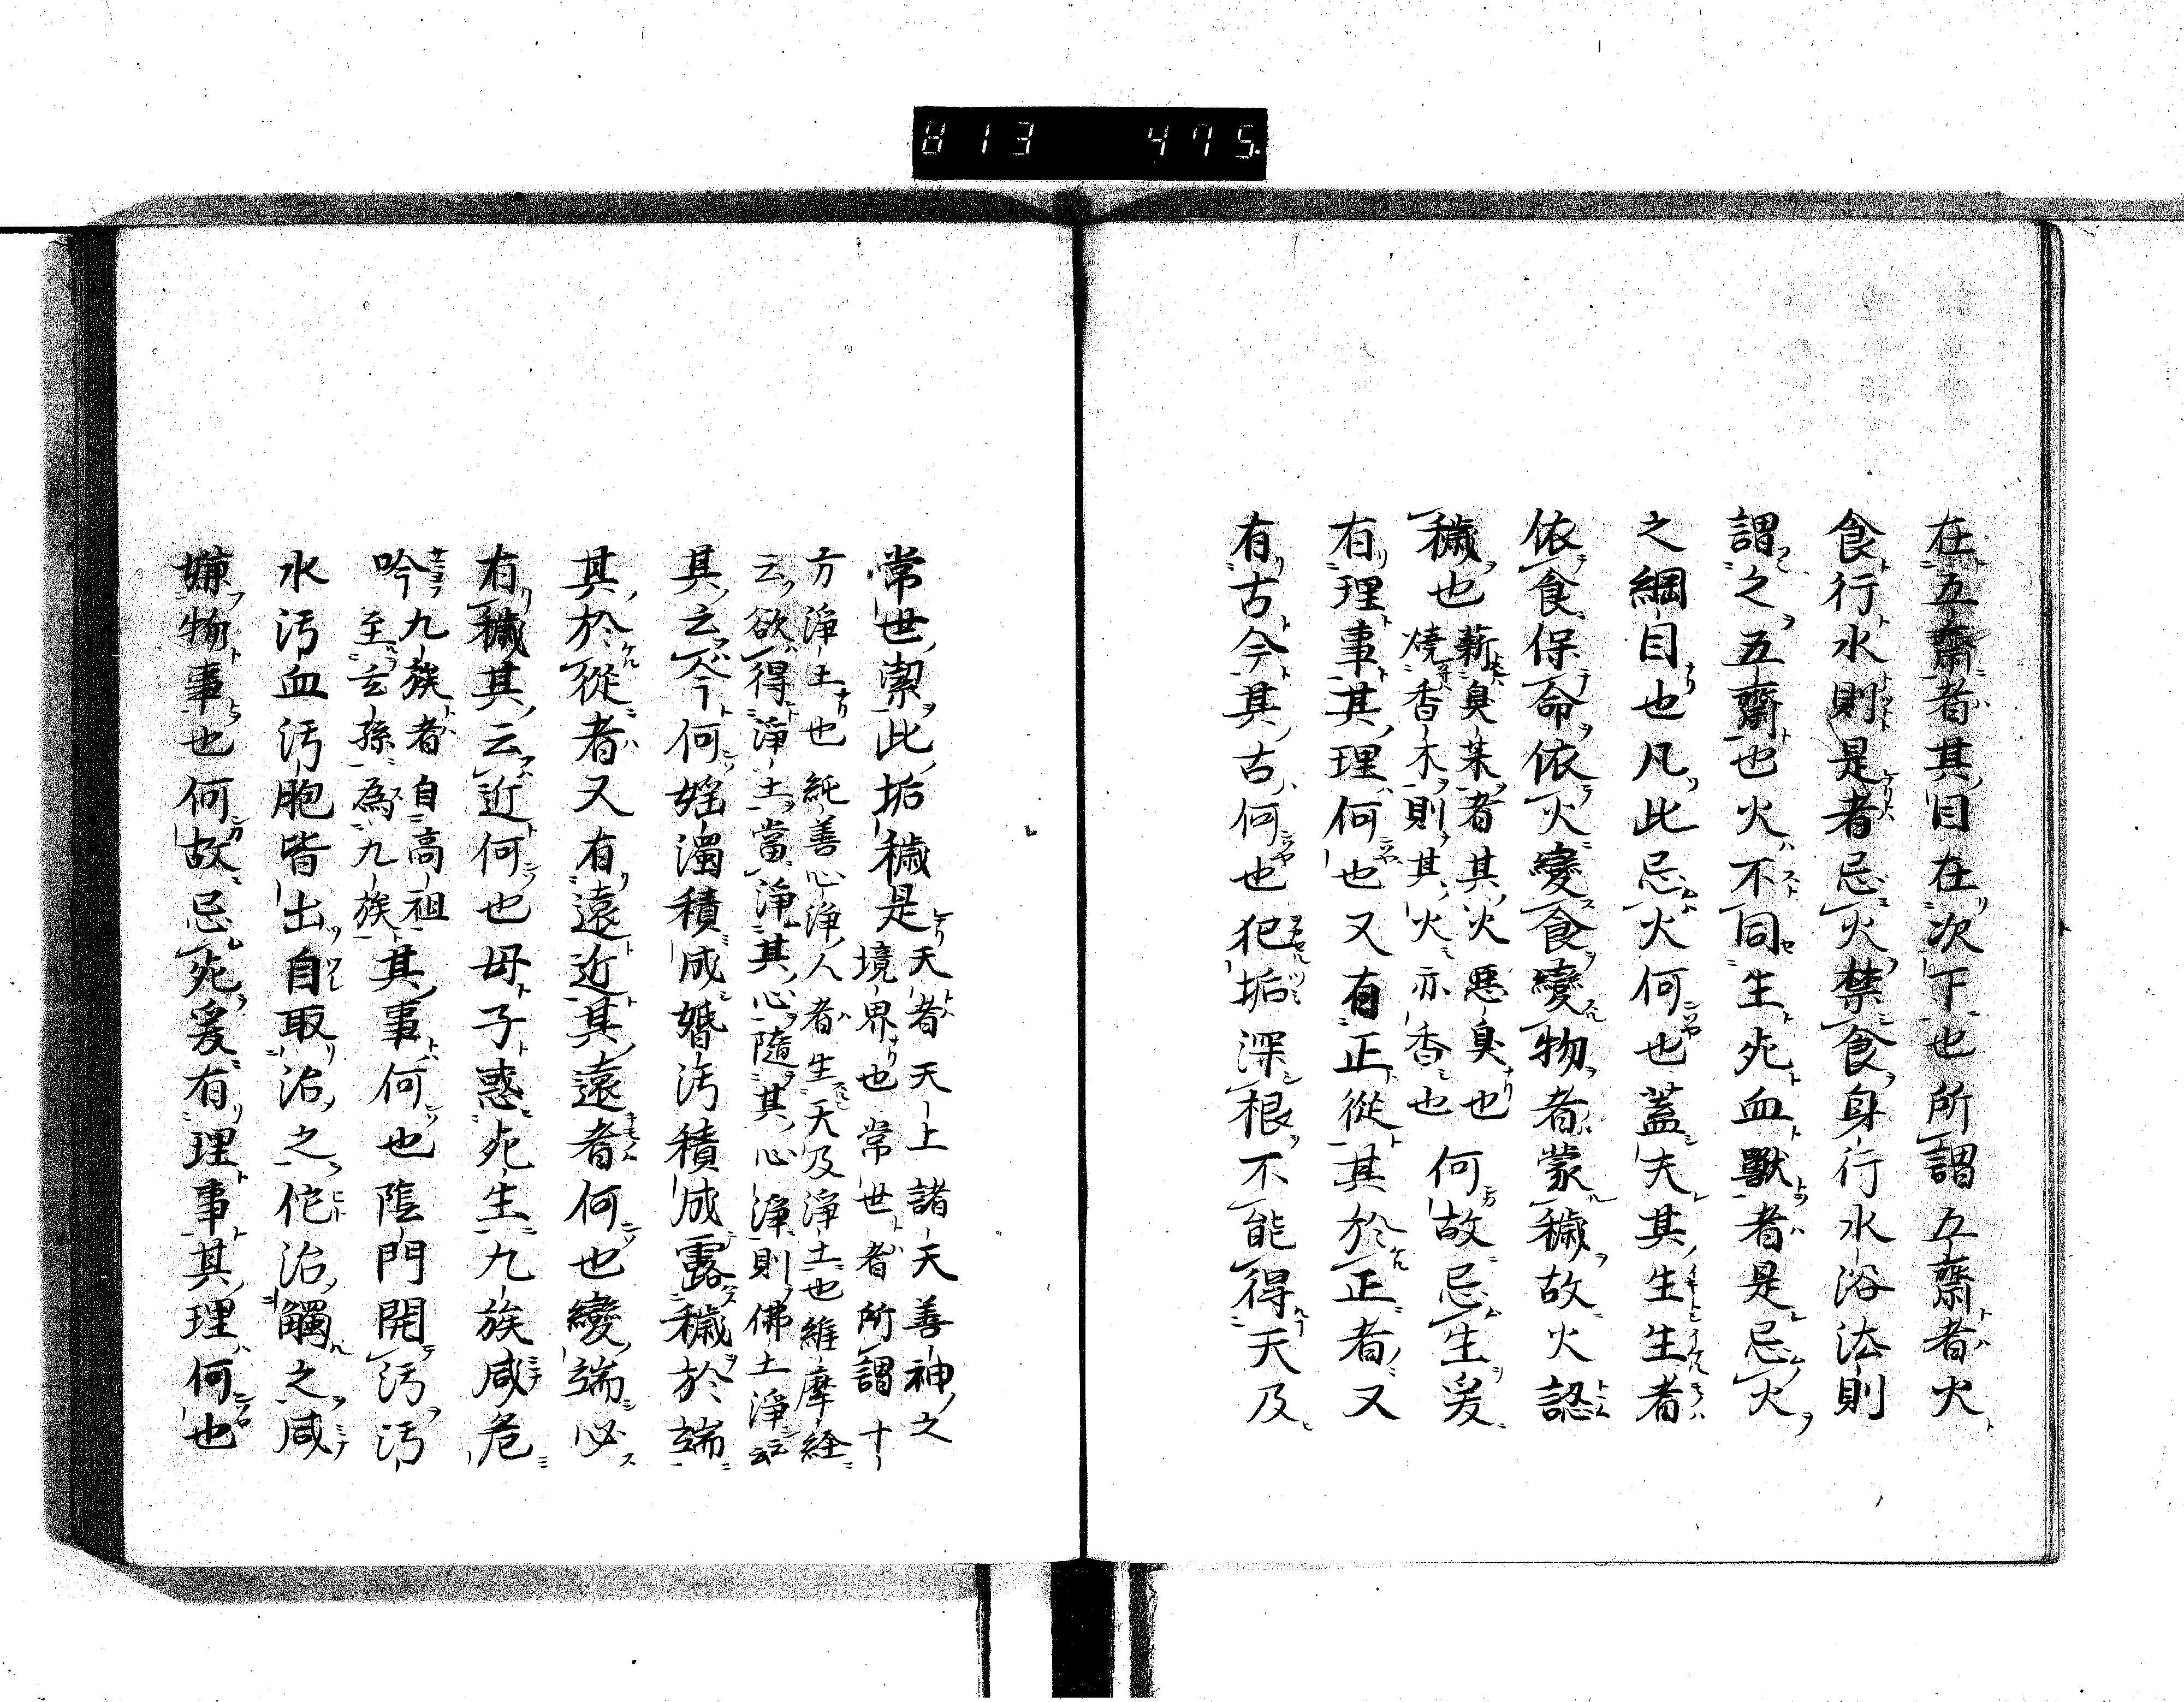 813 475.
在五齋者其目在次下也所謂五齋者火
食行水則是者忌火禁食身行水浴法則
謂之五齋也火不同生死血獸者是忌火
之綱目也凡此忌火何也蓋夫其生生者
依食保命依火變食變物者蒙穢故火認
穢也薪臭米者其火惡臭也
燒香木則其火亦香也何故忌生爰
有理事其理何也又有正從其於正者又
有古今其古何也犯垢深根不能得天及
常世潔此垢穢是天者天上諸天善神之
境界也常世者所謂十
方淨土也純善心淨人者生天及淨土也維摩経
云欲得淨土當淨其心隨其心淨則佛土淨云云
其云今何婬濁積成婚汚積成露穢於端
其於從者又有遠近其遠者何也變端必
有穢其云近何也母子惑死生九族咸危
吟九族者自高祖
至玄孫為九族其事何也陰門開汚汚
水汚血汚胞皆出自取治之佗治觸之咸
嫌物事也何故忌死爰有理事其理何也